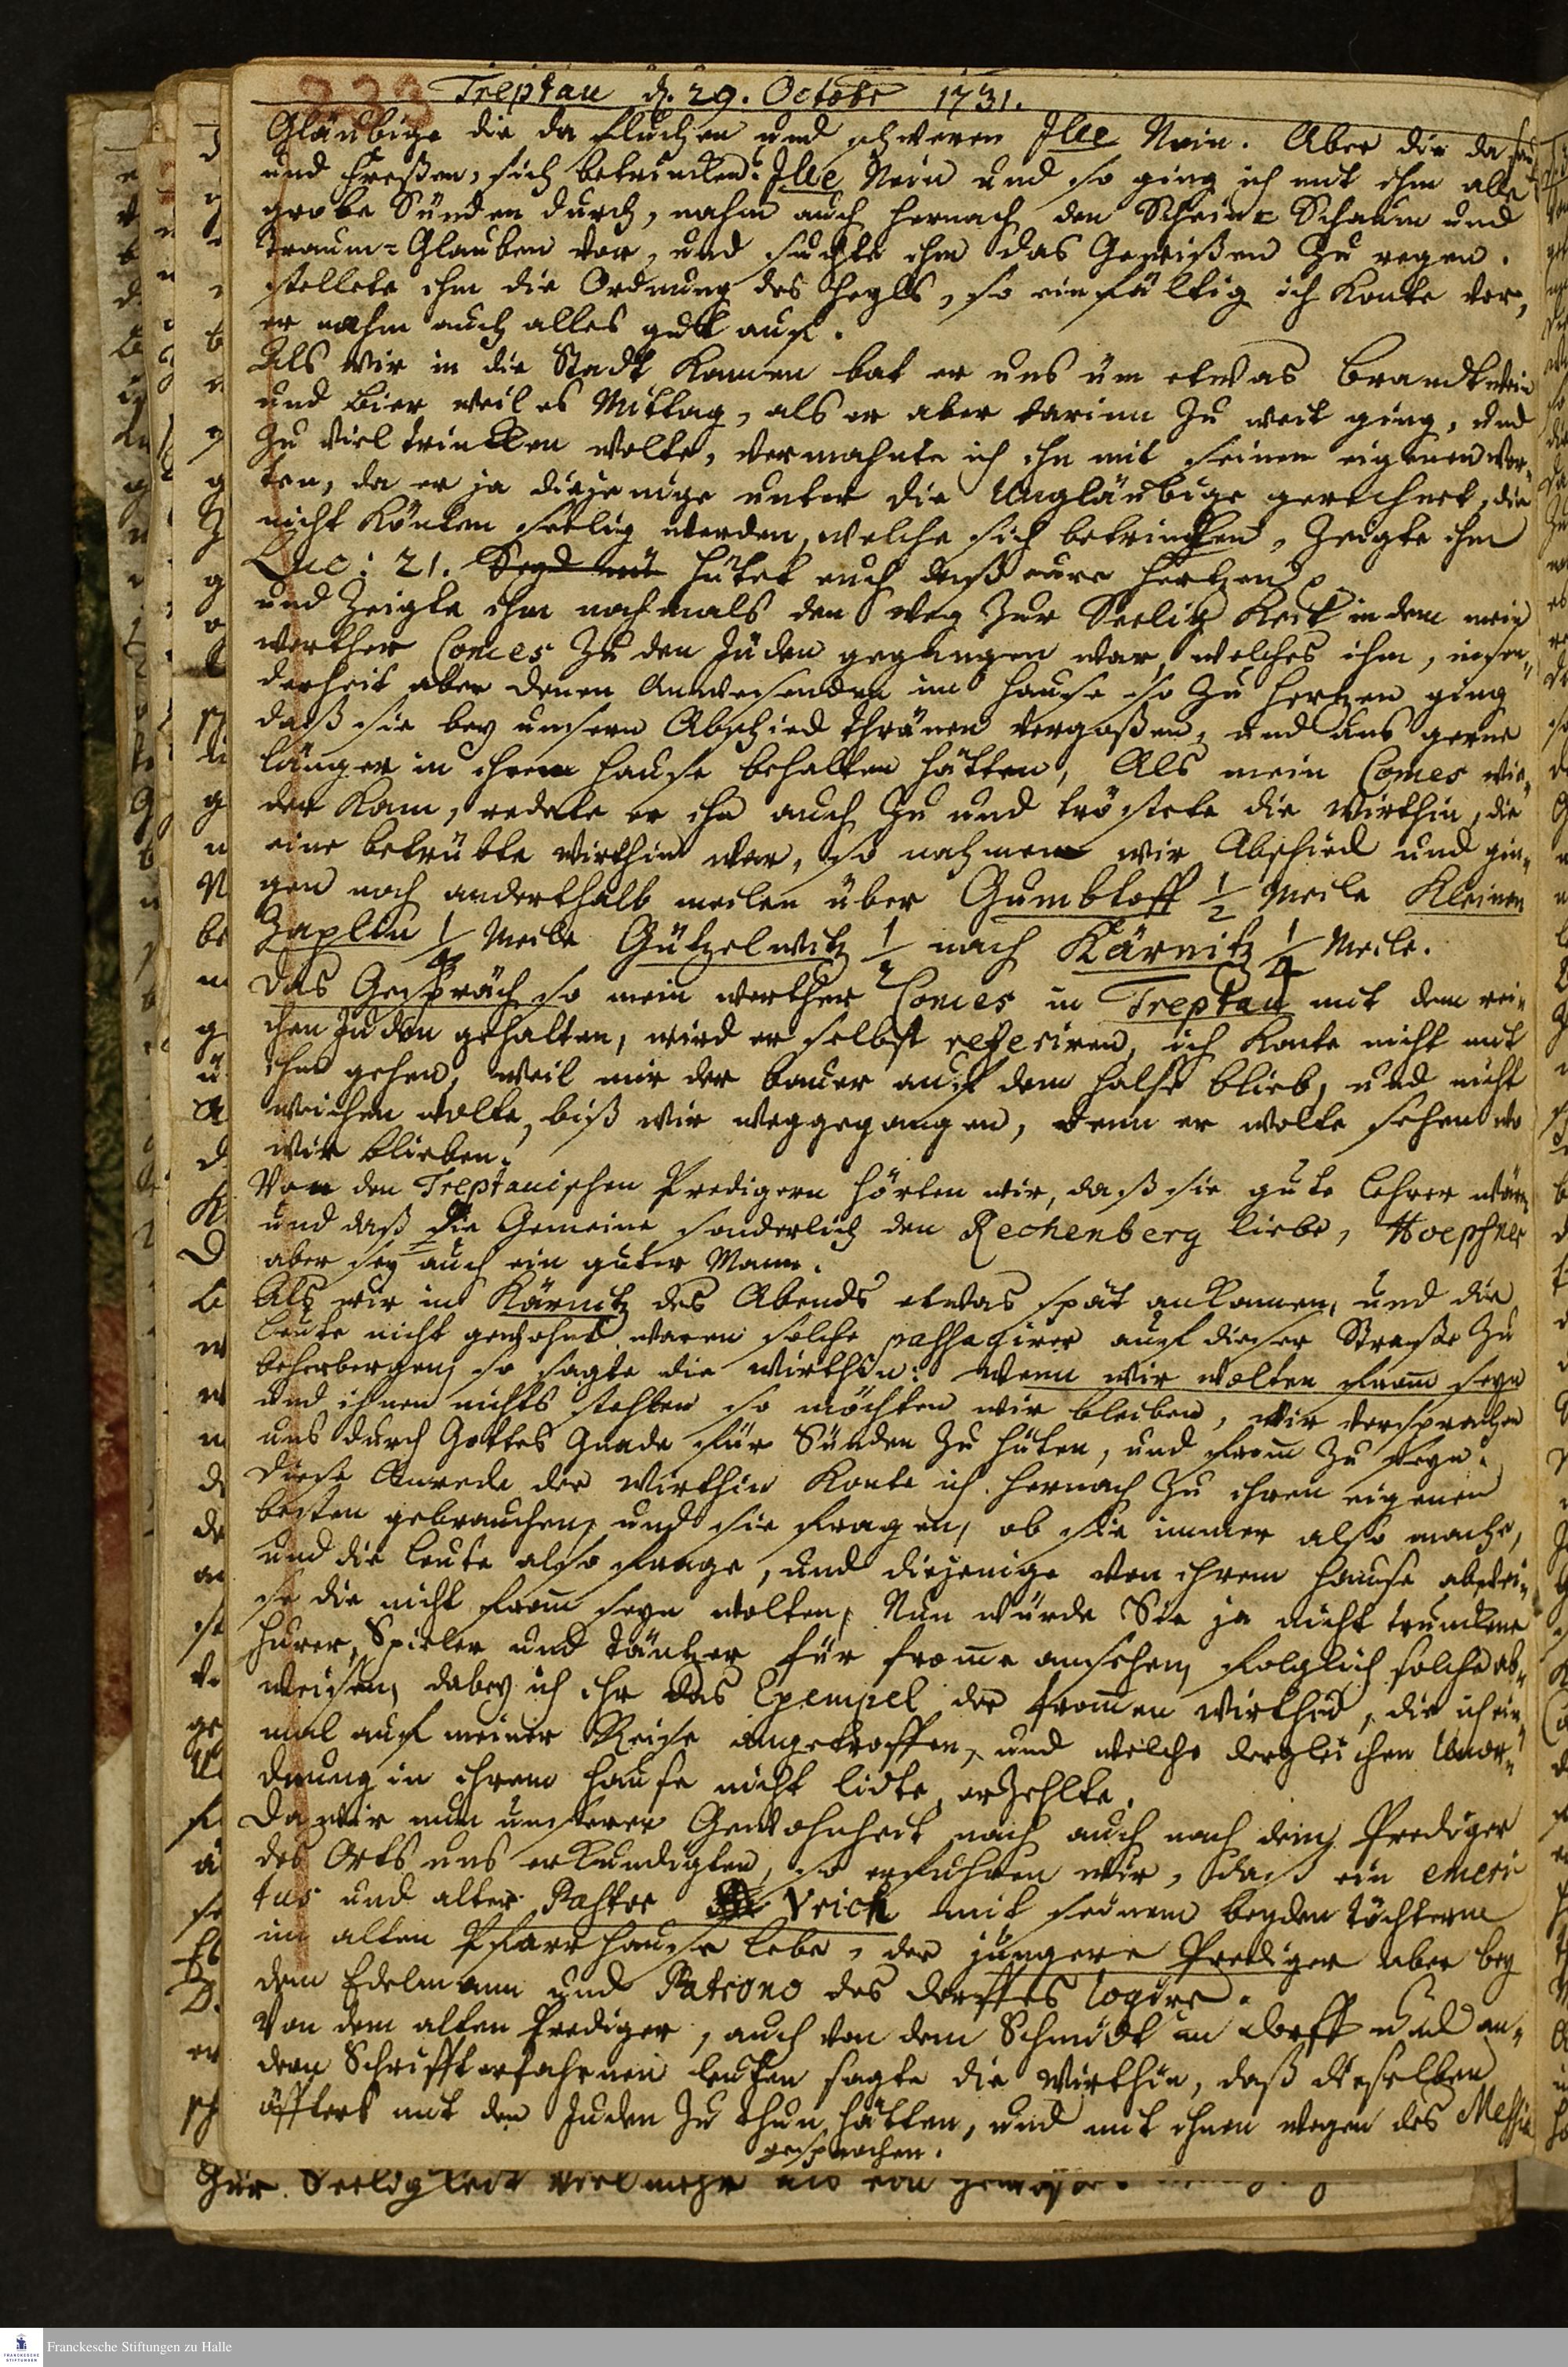 233
Treptau d. 29. Octobr 1731.
Gläubige die da fluchen und schweren Ille Nein. Aber die da
und freßen, sich betrincken? Ille Nein und so ging ich mit ihm alle
grobe Sünden durch, nahm auch hernach den Schein- Schaum und
traum-Glauben vor, und suchte ihm das Gewißen zu regen.
stellete ihm die Ordnung des Heyls, so einfältig ich konte vor,
er nahm auch alles gutt auf.
Als wir in die Stadt kamen bat er uns üm etwas brandtwein
und Bier weil es Mittag, als er aber darinn zu weit ging, und
zu viel trincken wolte, vermahnte ich ihn mit seinen eigenen wor-
ten, da er ja diejenige unter die Ungläubige gerechnet, die
nicht könten seelig werden, welche sich betrincken, zeigte ihm
Luc: 21. Seyd hütet euch daß eure hertzen
und zeigte ihm nochmals den weg zur Seeligkeit indem mein
werther Comes zu den Juden gegangen war, welches ihm, inson-
derheit aber denen Anwesenden im hause so zu hertzen ging
daß sie bey unsern Abschied thränen vergoßen, und uns gerne
länger in ihrem hause behalten hätten, Als mein Comes wie-
der kam, redete er ihn auch zu und tröstete die wirthin, die
eine betrübte wirthin war, so nahmen wir Abschied und gin-
gen noch anderthalb meilen über Gumbtoff 1/2 Meile Kleinen
Zaplin 1/4 Meile Gützelwitz 1/2 nach Kärnitz 1/4 Meile.
Das Gespräch so mein werther Comes in Treptau mit dem rei-
chen Juden gehalten, wird er selbst referiren, ich konte nicht mit
ihm gehen, weil mir der bauer auf dem halse blieb, und nicht
weichen wolte, biß wir weggegangen, denn er wolte sehen wo
wir blieben.
Von den Treptauischen Predigern hörten wir, daß sie gute Lehrer wären
und daß die Gemeine sonderlich den Rechenberg liebe, Hoepfner
aber sey auch ein guter Mann.
Als wir in Kärnitz des Abends etwas spät ankamen, und die
Leute nicht gewohnt waren solche passagirer auf dieser Straße zu
beherbergen, so sagte die wirthin: wenn wir wolten from seyn
und ihnen nichts stehlen so möchten wir bleiben, wir versprachen
uns durch Gottes Gnade für Sünden zu hüten, und from zu seyn.
Diese Anrede der wirthin konte ich hernach zu ihren eigenen
besten gebrauchen, und sie fragen, ob sie immer also mache,
und die Leute also frage, und diejenige von ihrem hause abwei-
se die nicht from seyn wolten, Nun würde Sie ja nicht trunckene
hurer, Spieler und täntzer für fromme ansehen, folglich solche ab-
weisen, dabey ich ihr das Exempel der frommen wirthin, die ich ein-
mal auf meiner Reise angetroffen, und welche dergleichen Unor-
dnung in ihrem hause nicht lidte, erzehlte.
Da wir nun unserer Gewohnheit nach auch nach dem Prediger
des Orts uns erkundigten, so erfuhren wir, daß ein emeri
tus und alter Pastor Vrich mit seinem beyden töchtern
im alten Pfarrhause lebe, der jüngere Prediger aber bey
dem Edelmann und Patrono des dorffes logire.
Von dem alten Prediger, auch von dem Schmidt im dorff und an-
dern Schrifft erfahrnen leuten sagte die wirthin, daß dieselben
öffters mit den Juden zu thun hätten, und mit ihnen wegen des Messiae
gesprochen.
Zur Seeligkeit vielmehr als von
Franckesche Stiftungen zu Halle